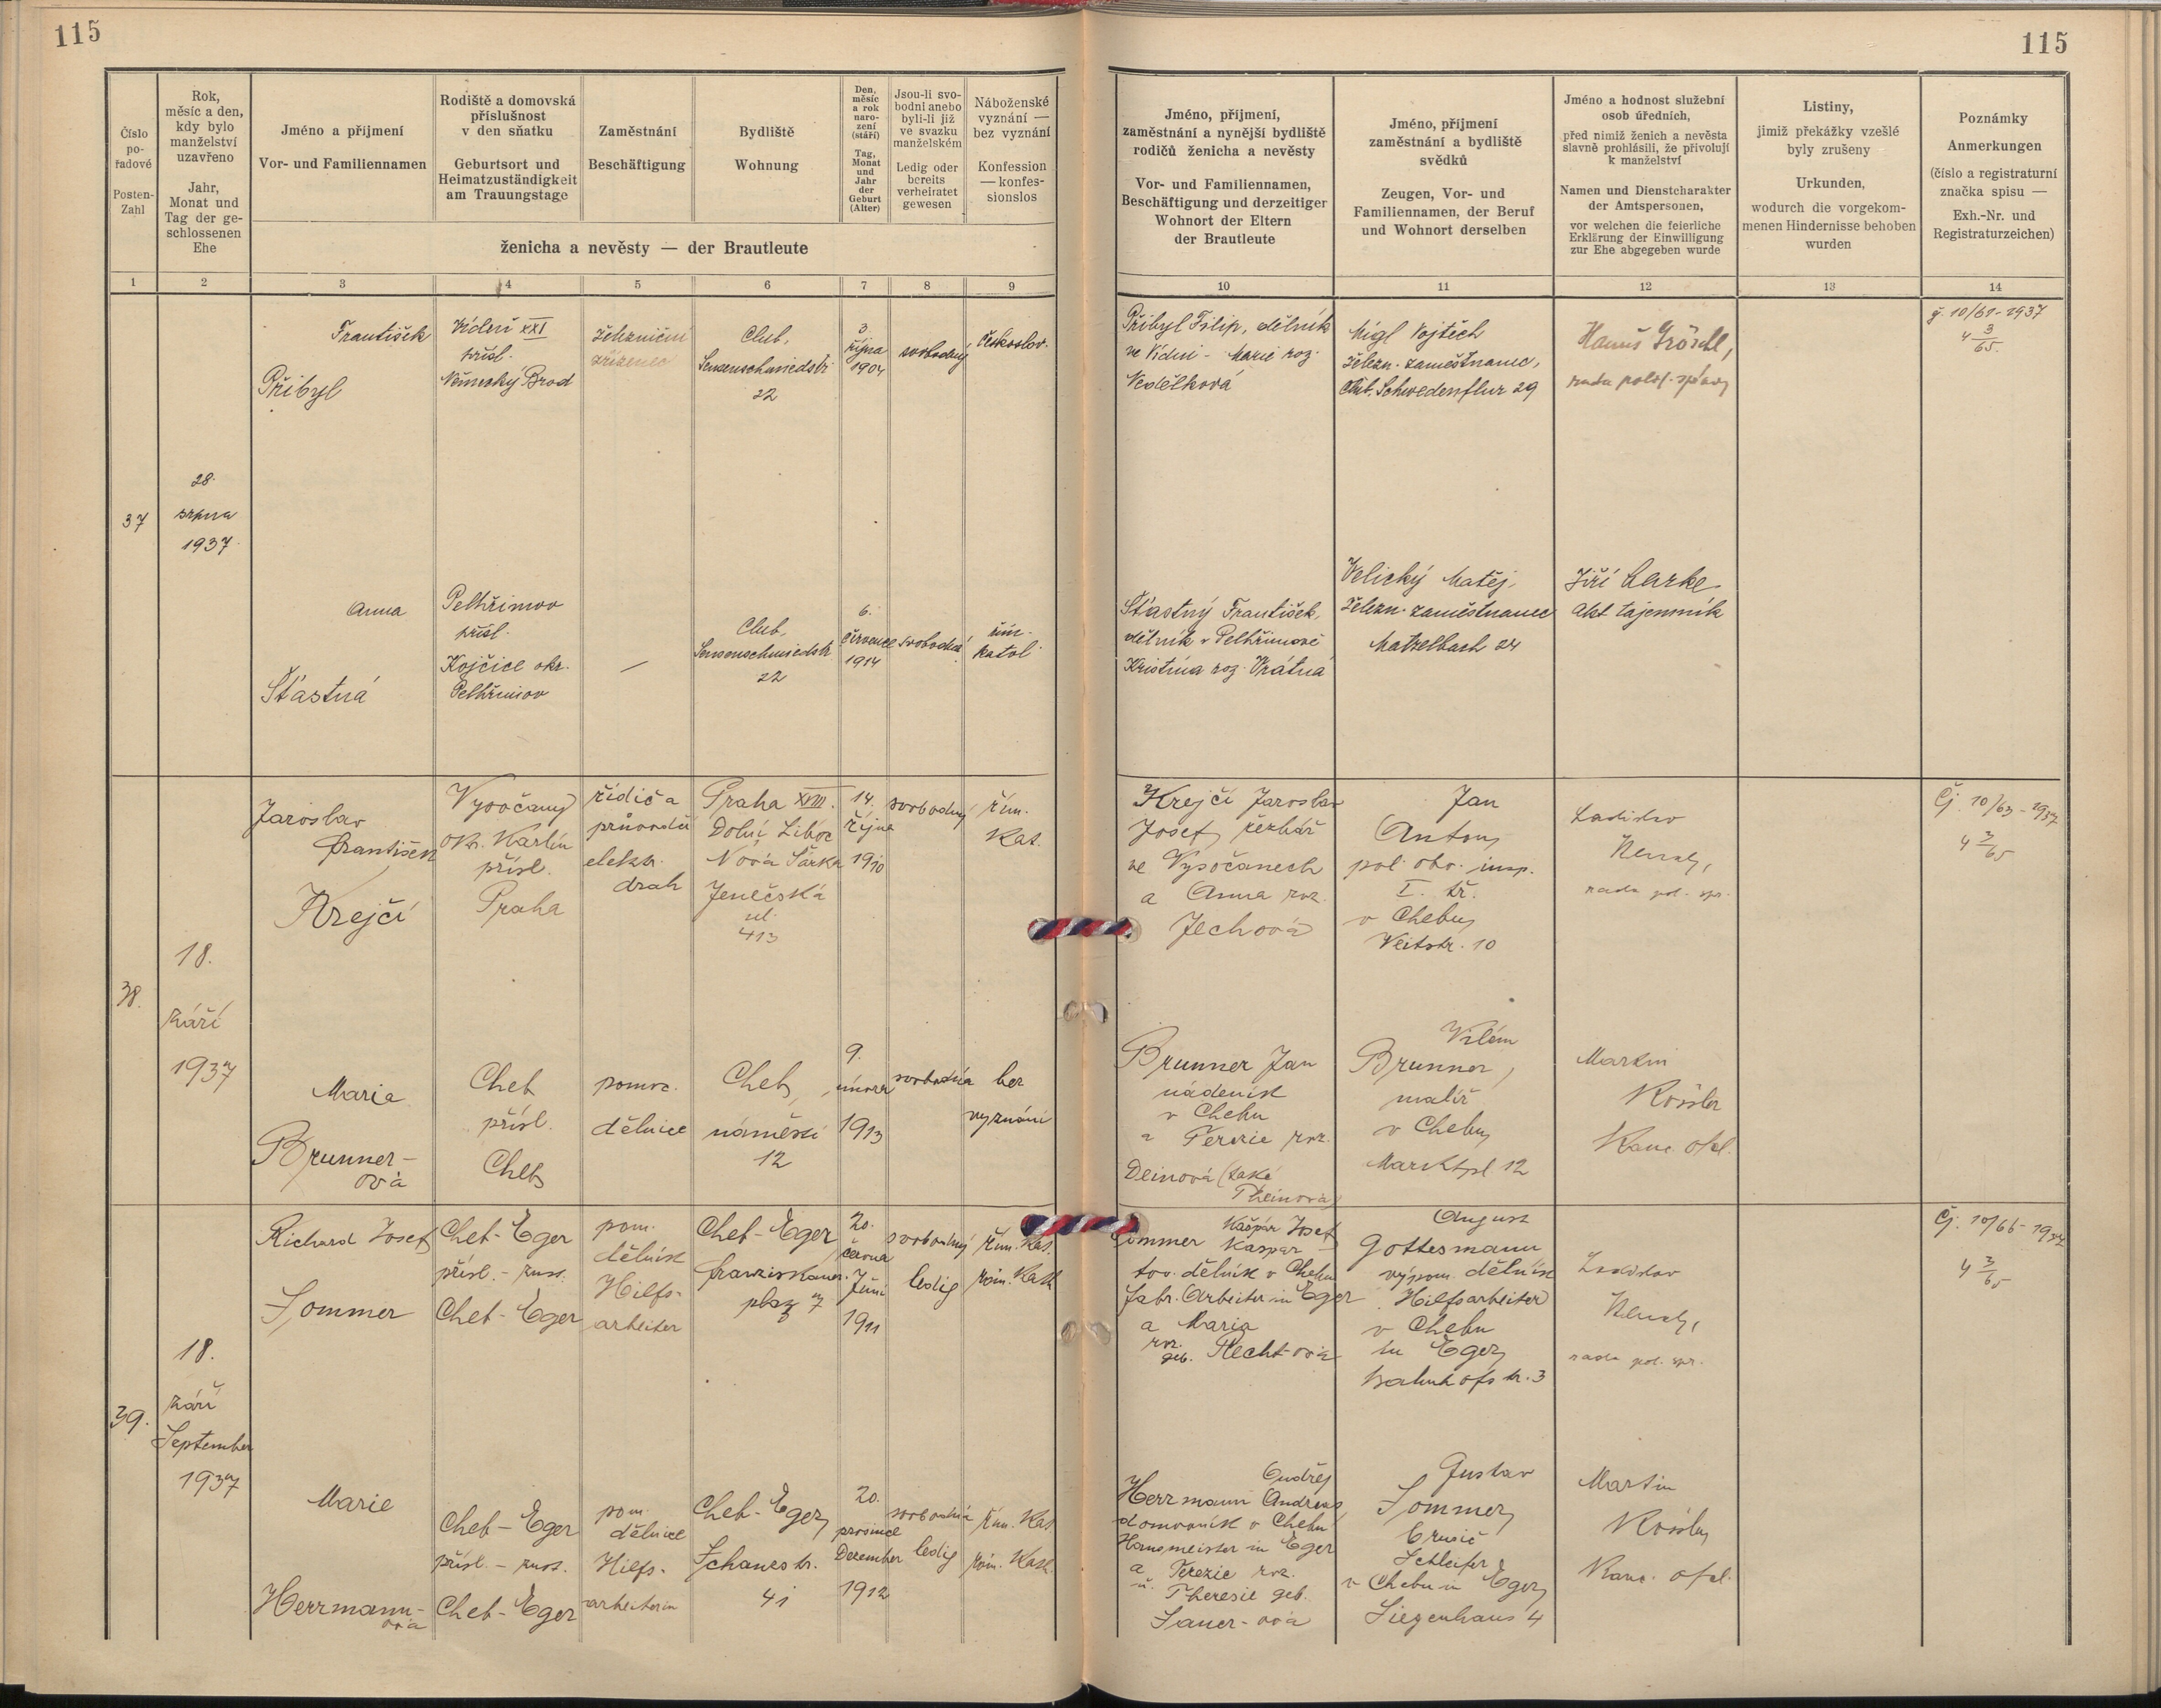 115
115
Číslo
po-
řadové
Posten-
Zahl
Rok,
měsíc a den,
kdy bylo
manželství
uzavřeno
Jahr,
Monat und
Tag der ge-
schlossenen
Ehe
Jméno a přijmení
Vor- und Familiennamen
Rodiště a domovská
příslušnost
v den sňatku
Geburtsort und
Heimatzuständigkeit
am Trauungstage
Zaměstnání
Beschäftigung
Bydliště
Wohnung
Den,
měsíc
a rok
naro-
zení
(stáří)
Tag,
Monat
und
Jahr
der
Geburt
(Alter)
Jsou-li svo-
bodni anebo
byli-li již
ve svazku
manželském
Ledig oder
bereits
verheiratet
gewesen
Náboženské
vyznání —
bez vyznání
Konfession
— konfes-
sionslos
ženicha a nevěsty — der Brautleute
Jméno, příjmení,
zaměstnání a nynější bydliště
rodičů ženicha a nevěsty
Vor- und Familiennamen,
Beschäftigung und derzeitiger
Wohnort der Eltern
der Brautleute
Jméno, příjmení
zaměstnání a bydliště
svědků
Zeugen, Vor- und
Familiennamen, der Beruf
und Wohnort derselben
Jméno a hodnost služební
osob úředních,
před nimiž ženich a nevěsta
slavně prohlásili, že přivolují
k manželství
Namen und Dienstcharakter
der Amtspersonen,
vor welchen die feierliche
Erklärung der Einwilligung
zur Ehe abgegeben wurde
Listiny,
jimiž překážky vzešlé
byly zrušeny
Urkunden,
wodurch die vorgekom-
menen Hindernisse behoben
wurden
Poznámky
Anmerkungen
(číslo a registraturní
značka spisu —
Exh.-Nr. und
Registraturzeichen)
1
2
3
4
5
6
7
8
9
10
11
12
13
14
37
28.
srpna
1937
František
Přibyl
Vídeň XXI
přísl.
Německý Brod
železniční
zřízenec
Cheb,
Sensenschmiedstr.
22
3.
října
1904
svobodný
českoslov.
Přibyl Filip, dělník
ve Vídni - Marie roz.
Nedělková
Migl Vojtěch
železn. zaměstnanec,
Cheb. Schwedenflur 29
Hanuš Gröschl,
rada polit. správy
č. 10/61-1937
4 3/65.
Anna
Šťastná
Pelhřimov
přísl.
Kojčice okr.
Pelhřimov
—
Cheb,
Sensenschmiedstr.
22
6.
července
1914
svobodná
řím.
katol.
Šťastný František,
dělník v Pelhřimově
Kristina roz. Vrátná
Velický Matěj,
železn. zaměstnanec
Matzelbach 24
Jiří Larke
akt. tajemník
38.
18.
září
1937
Jaroslav
František
Krejčí
Vysočany
okr. Karlín
přísl.
Praha
řidič a
průvodčí
elektr.
drah
Praha XVIII.
Dolní Liboc
Nová Šárka
Jenečská
ul.
413
14.
října
1910
svobodný
řím.
kat.
Krejčí Jaroslav
Josef, řezbář
ve Vysočanech
a Anna roz.
Jechová
Jan
Antony
pol. obv. insp.
I. tř.
v Chebu,
Veitstr. 10
Ladislav
rada pol. spr.
Čj. 10/63-1937
4 3/65
Maria
Brunner-
ová
Cheb
přísl.
Cheb
pomoc.
dělnice
Cheb,
náměstí
12
9.
února
1913
svobodná
bez
vyznání
Brunner Jan
nádeník
v Chebu
a Terezie roz.
Deinová (také
Theinová)
Vilém
Brunner,
malíř
v Chebu,
Marktpl. 12
Martin
Rössler
Kanc. ofcl.
39.
18.
září
September
1937
Richard Josef
Sommer
Cheb-Eger
přísl. - zust.
Cheb-Eger
pom.
dělník
Hilfs-
arbeiter
Cheb-Eger
Franziskaner-
platz 7
20.
června
Juni
1911
svobodný
ledig
řím. kat.
röm. kath.
Kašpar Josef
Sommer Kaspar
tov. dělník v Chebu
Fabr. Arbeiter in Eger
a Maria
roz.
geb. Plecht-ová
August
Gottesmann
výpom. dělník
Hilfsarbeiter
v Chebu
in Eger,
Bahnhofstr. 3
Ladislav
rada pol. spr.
Čj. 10/66-1937
4 3/65
Marie
Herrmann-
ová
Cheb-Eger
přísl. - zust.
Cheb-Eger
pom.
dělnice
Hilfs-
arbeiterin
Cheb-Eger,
Schanzstr.
41
20.
prosince
Dezember
1912
svobodná
ledig
řím. kat.
röm. kath.
Ondřej
Herrmann Andreas
domovník v Chebu
Hausmeister in Eger
a Terezie roz.
u. Theresie geb.
Sauer-ová
Gustav
Sommer,
brusič
Schleifer
v Chebu in Eger,
Siegenhaus 4
Martin
Rössler,
Kanc. ofcl.